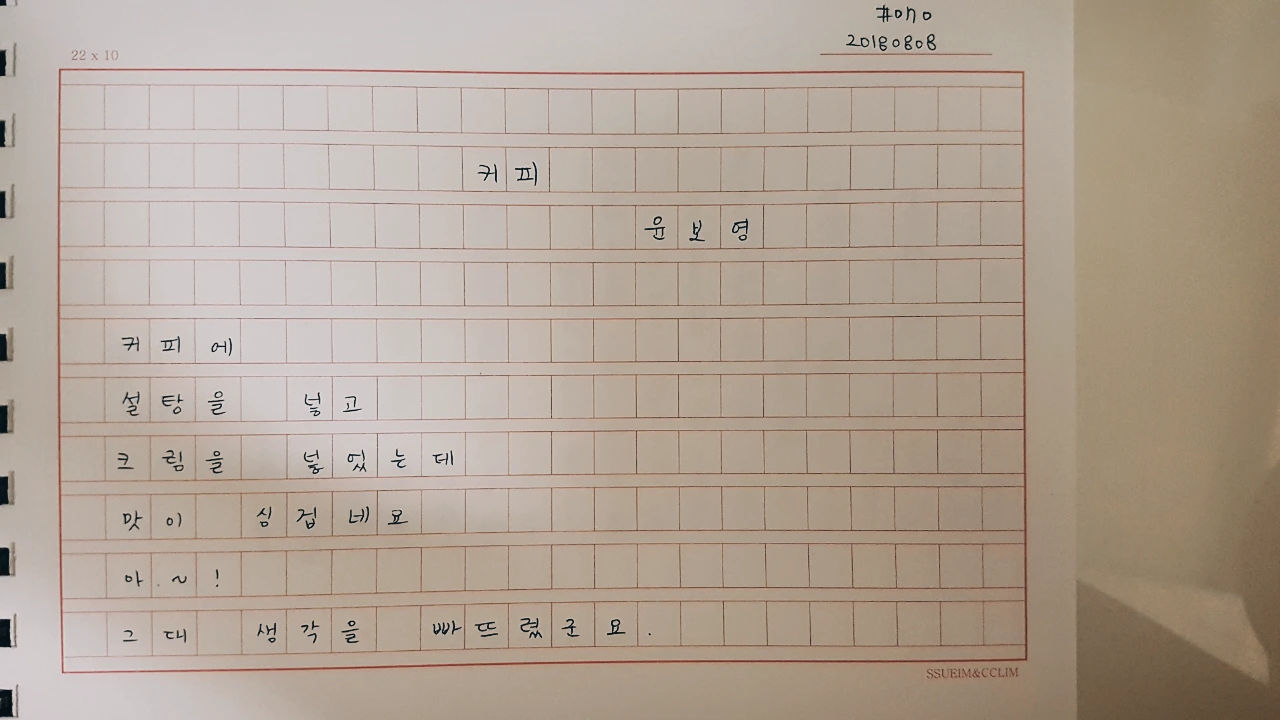 #ono
20180808
22 x 10
커피
윤보영
커피에
설탕을 넣고
크림을 넣었는데
맛이 싱겁네요
아~!
그대 생각을 빠뜨렸군요.
SSUEIM&CCLIM